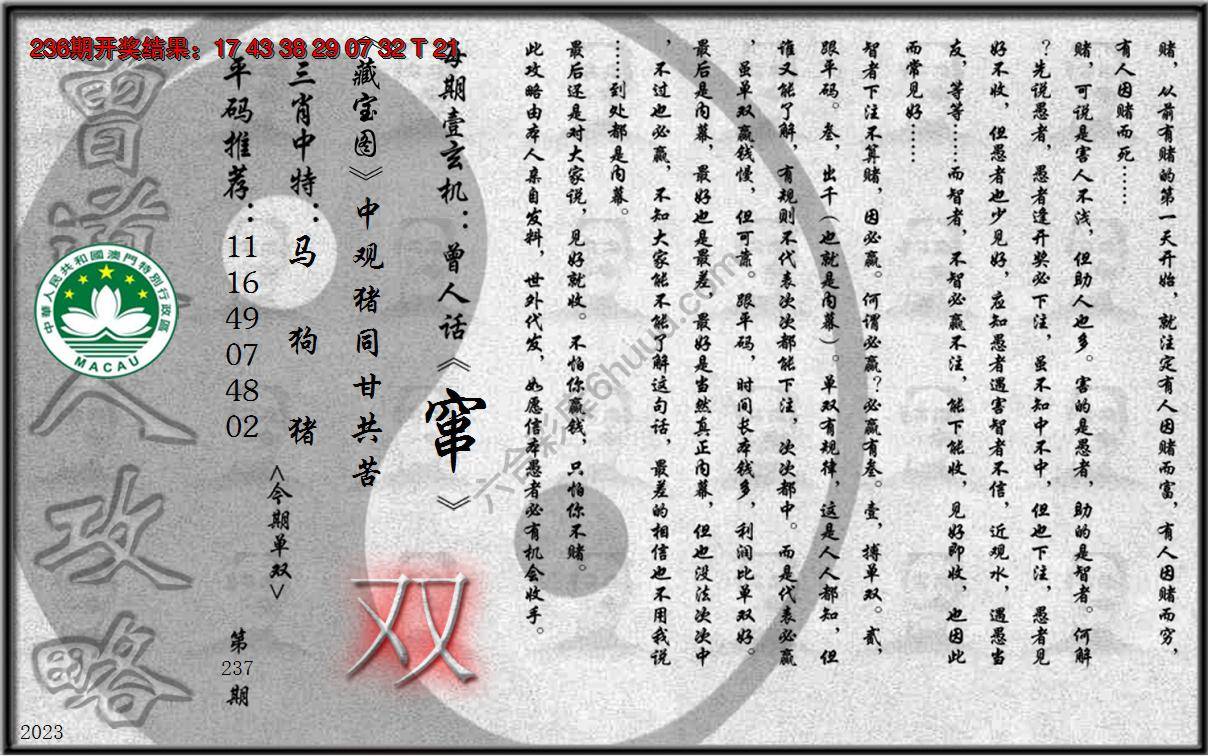 236期开奖结果：17 43 38 29 07 32 T 21
赌，从前有赌的第一天开始，就注定有人因赌而富，有人因赌而穷，
有人因赌而死……
赌，可说是害人不浅，但助人也多。害的是愚者，助的是智者。何解
？先说愚者，愚者逢开奖必下注，虽不知中不中，但也下注，愚者见
好不收，但愚者也少见好，应知愚者遇害智者不信，近观水，遇愚当
友，等等……而智者，不智必赢不注，能下能收，见好即收，也因此
而常见好……
智者下注不算赌，因必赢。何谓必赢？必赢有叁。壹，搏单双。贰，
跟平码。叁，出千（也就是内幕）。单双有规律，这是人人都知，但
谁又能了解，有规则不代表次次都能下注，次次都中。而是代表必赢
，虽单双赢钱慢，但可靠。跟平码，时间长本钱多，利润比单双好。
最后是内幕，最好也是最差，最好是当然真正内幕，但也没法次次中
，不过也必赢，不知大家能不能了解这句话，最差的相信也不用我说
……到处都是内幕。
最后还是对大家说，见好就收。不怕你赢钱，只怕你不赌。
此攻略由本人亲自发料，世外代发，如愿信本愚者必有机会收手。
每期壹玄机：曾人话《窜》
《藏宝图》中观猪同甘共苦
双
三肖中特：马 狗 猪
<今期单双>
平码推荐：11 16 49 07 48 02
第237期
曾道人攻略
中華人民共和國澳門特別行政區
MACAU
2023
六合彩库6huuu.com